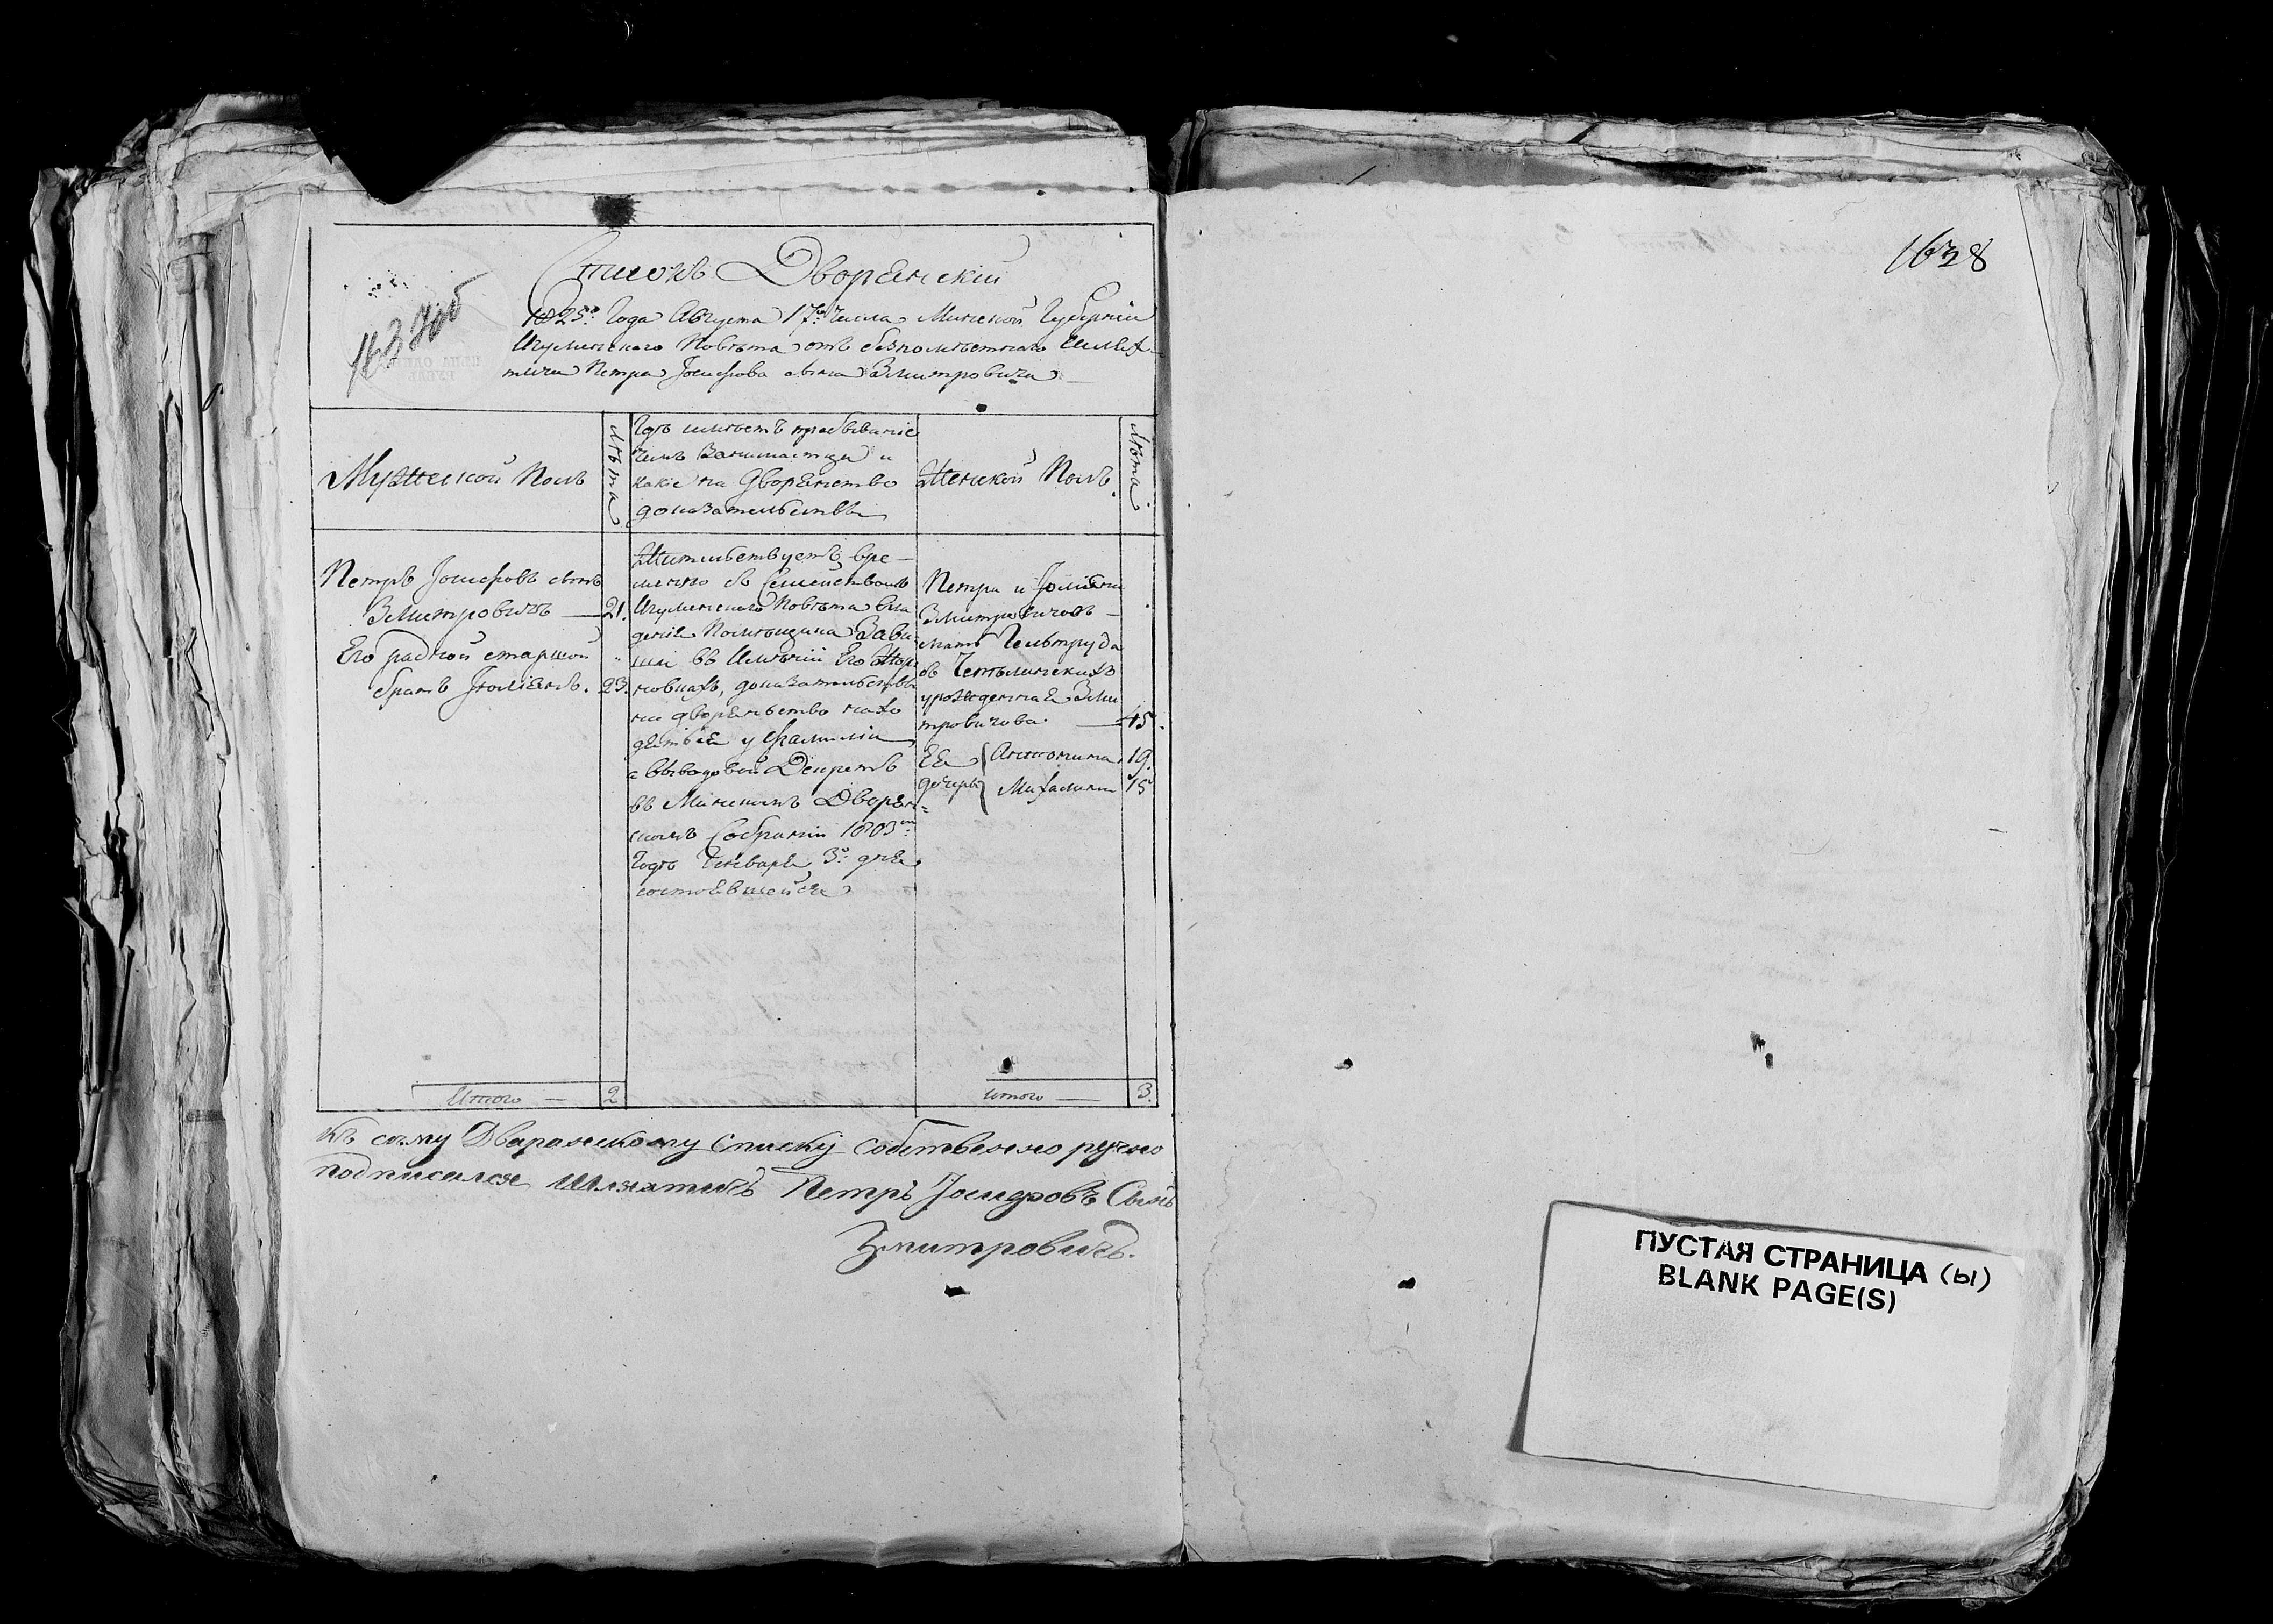 Списокъ Дворянскій
1825го Года Августа 17го числа Минской Губерніи
Игуменскаго Повѣта отъ безпомѣстнаго Шлях-
тича Петра Іосифова сына Змитровича
1637 об
1638
Мужеской Полъ
Лѣта
Гдѣ имѣетъ пребываніе
чемъ Занимается и
какіе на Дворянство
доказательствы
Женской Полъ
Лѣта
Петръ Іосифовъ сынъ
Змитровичъ — 21.
Его радной старшой
братъ Іюліянъ. 23.
Жительствуетъ вре-
менно съ Семействомъ
Игуменскаго Повѣта вла
деніе Помѣщика Зави-
ши въ Имѣніи Его
новцахъ, доказательствы
на дворянство нахо
дяться у фамиліи
а выводовый Декретъ
въ Минскомъ Дворян=
скомъ Собраніи 1803
Года Генваря 3го дня
состоявшейся
Петра и Юліяна
Змитровичовъ —
мать Гельтруда
зъ
урожденная Зми
тровичова. — 45.
Ея Антонина 19.
дочеры Михалина 15
Итого — 2
Итого — 3.
Къ сему Дваранскому Списку собственно ручно
подписался Шляхтичъ Петръ Іосифовъ Сынъ
Змитровичъ.
ПУСТАЯ СТРАНИЦА (Ы)
BLANK PAGE(S)